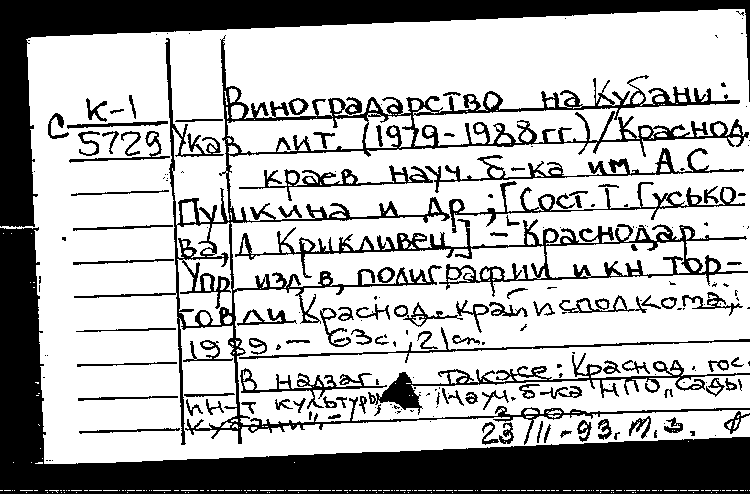 К-1
С 5729
Виноградарство на Кубани:
Указ. лит. (1979-1988гг.)/Краснод.
краев науч. б-ка им. А.С
Пушкина и др.; [Сост. Т. Гусько-
ва, Л Крикливец,] - Краснодар:
Упр изд-в, полиграфии и кн. тор-
говли Краснод. крайисполкома,
1989. - 63с.; 21см.
В надзаг. также: Краснод. гос.
ин-т культуры, Науч. б-ка НПО „Сады
Кубани". -
23/II-93. т. з.